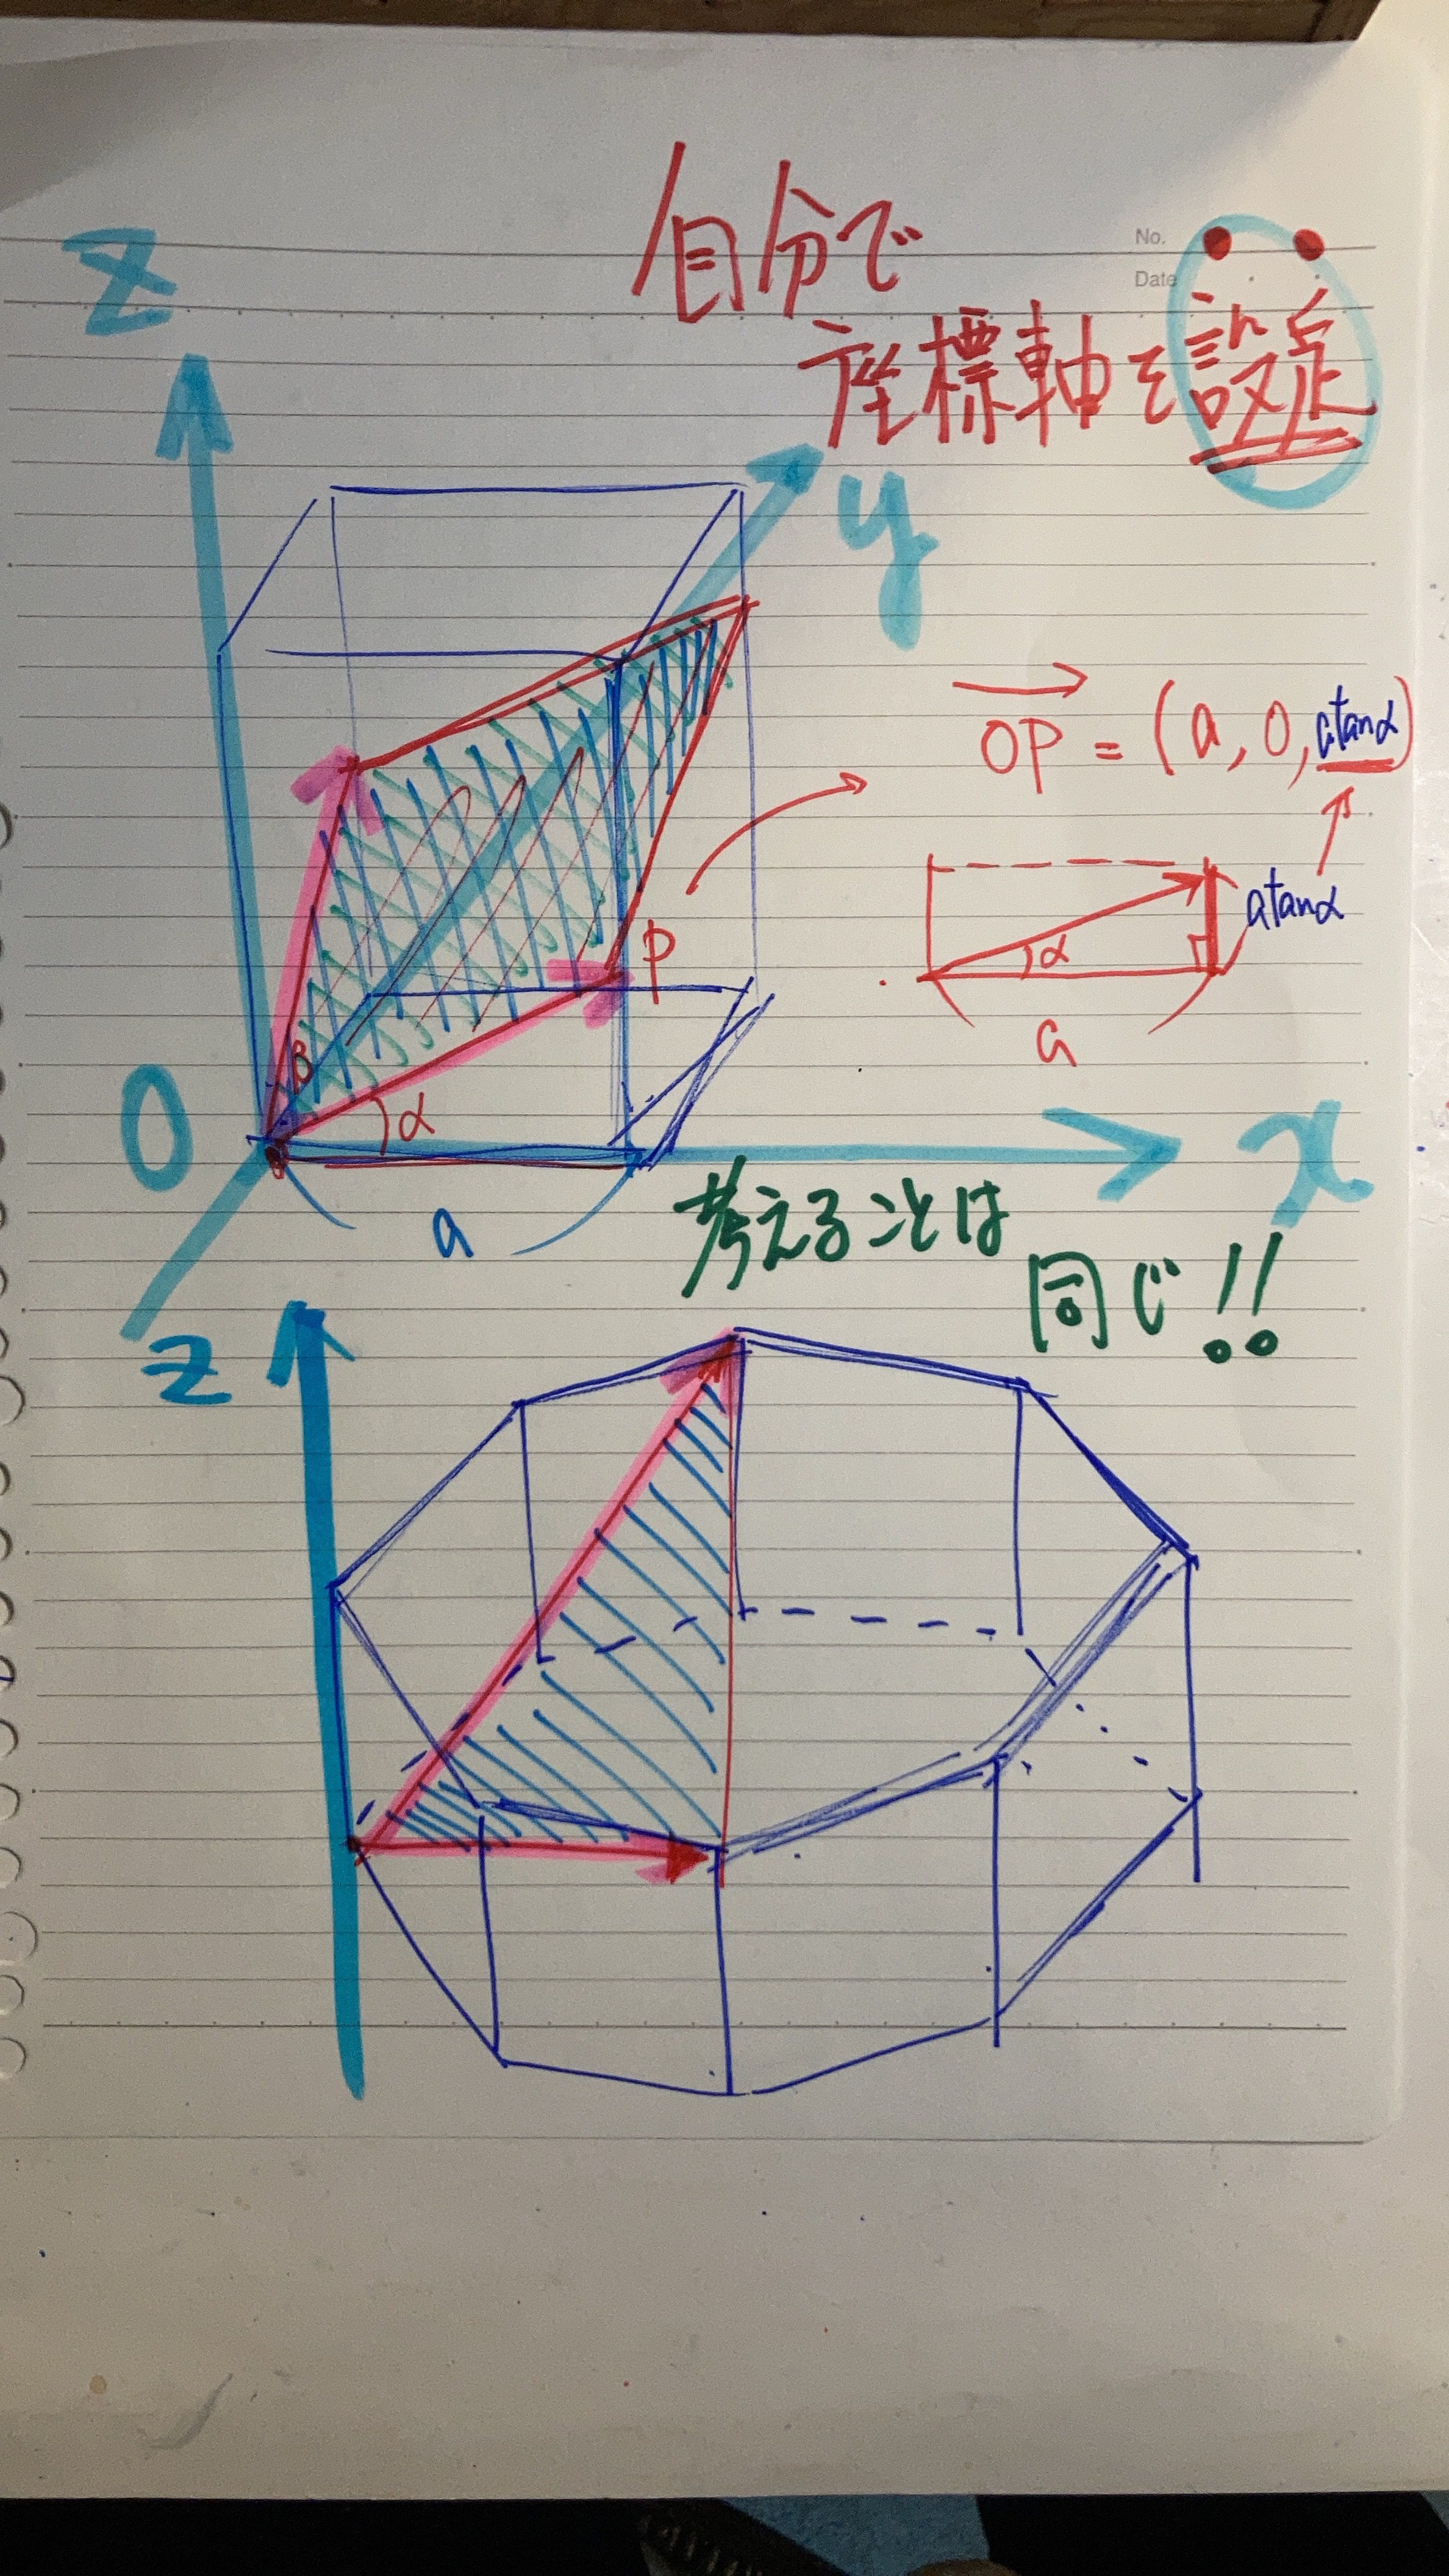 自分で
座標軸を設定
No.
Date
z
y
→
OP = (a, 0, atanα)
P
atanα
α
a
β
α
O
x
a
考えることは
同じ!!
z